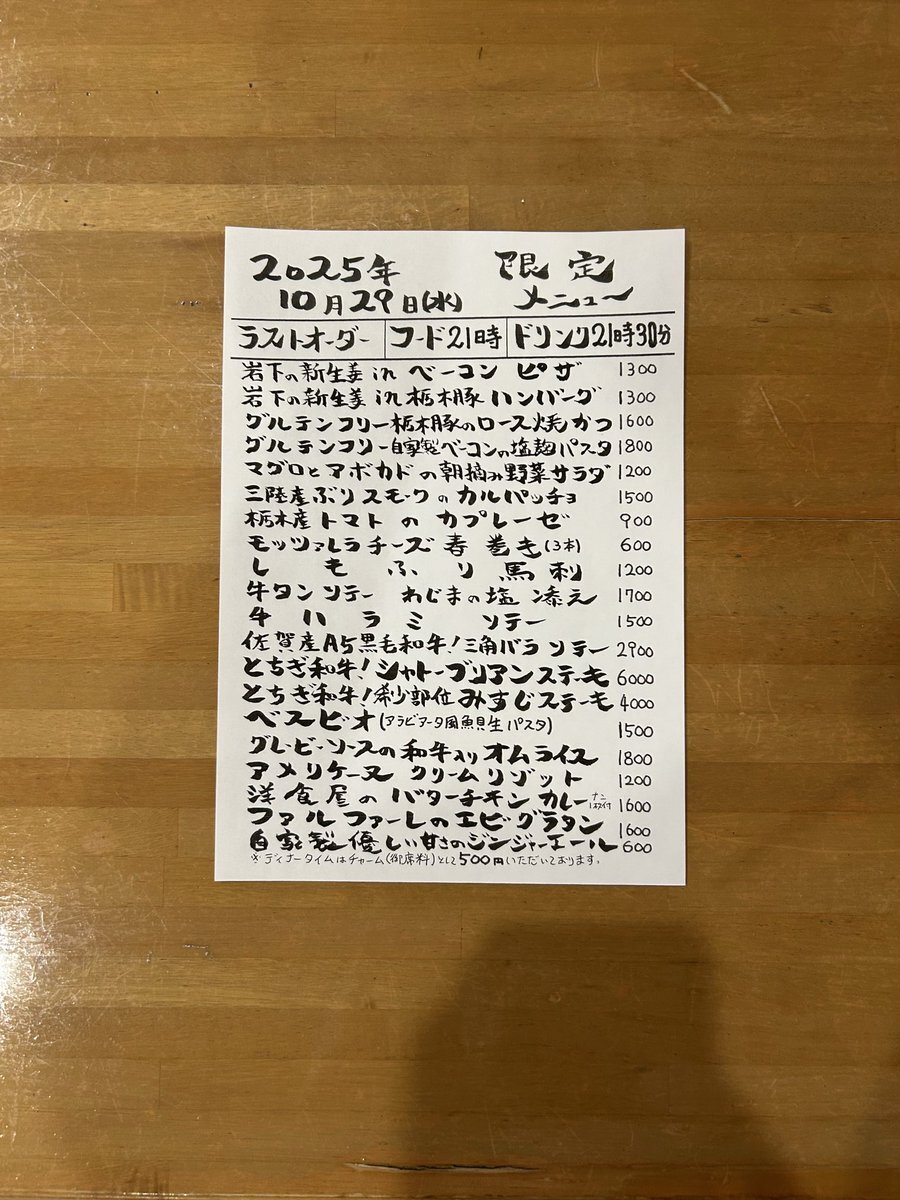 2025年 限定
10月29日(水) メニュー
ラストオーダー フード21時 ドリンク21時30分
岩下の新生姜in ベーコン ピザ 1300
岩下の新生姜in 栃木豚 ハンバーグ 1300
グルテンフリー栃木豚のロース焼かつ 1600
グルテンフリー自家製ベーコンの塩麹パスタ 1800
マグロとアボカドの朝摘み野菜サラダ 1200
三陸産ぶりスモークのカルパッチョ 1500
栃木産トマトのカプレーゼ 900
モッツァレラチーズ春巻き(3本) 600
しもふり馬刺 1200
牛タンソテー わじまの塩添え 1700
牛ハラミソテー 1500
佐賀産A5黒毛和牛!三角バラソテー 2900
とちぎ和牛!シャトーブリアンステーキ 6000
とちぎ和牛!希少部位みすじステーキ 4000
ベスビオ(アラビアータ風魚貝生パスタ) 1500
グレービーソースの和牛入りオムライス 1800
アメリケーヌクリームリゾット 1200
洋食屋のバターチキンカレー ナン1枚付 1600
ファルファーレのエビグラタン 1600
自家製優しい甘さのジンジャーエール 600
※ディナータイムはチャーム(御席料)として500円いただいております。